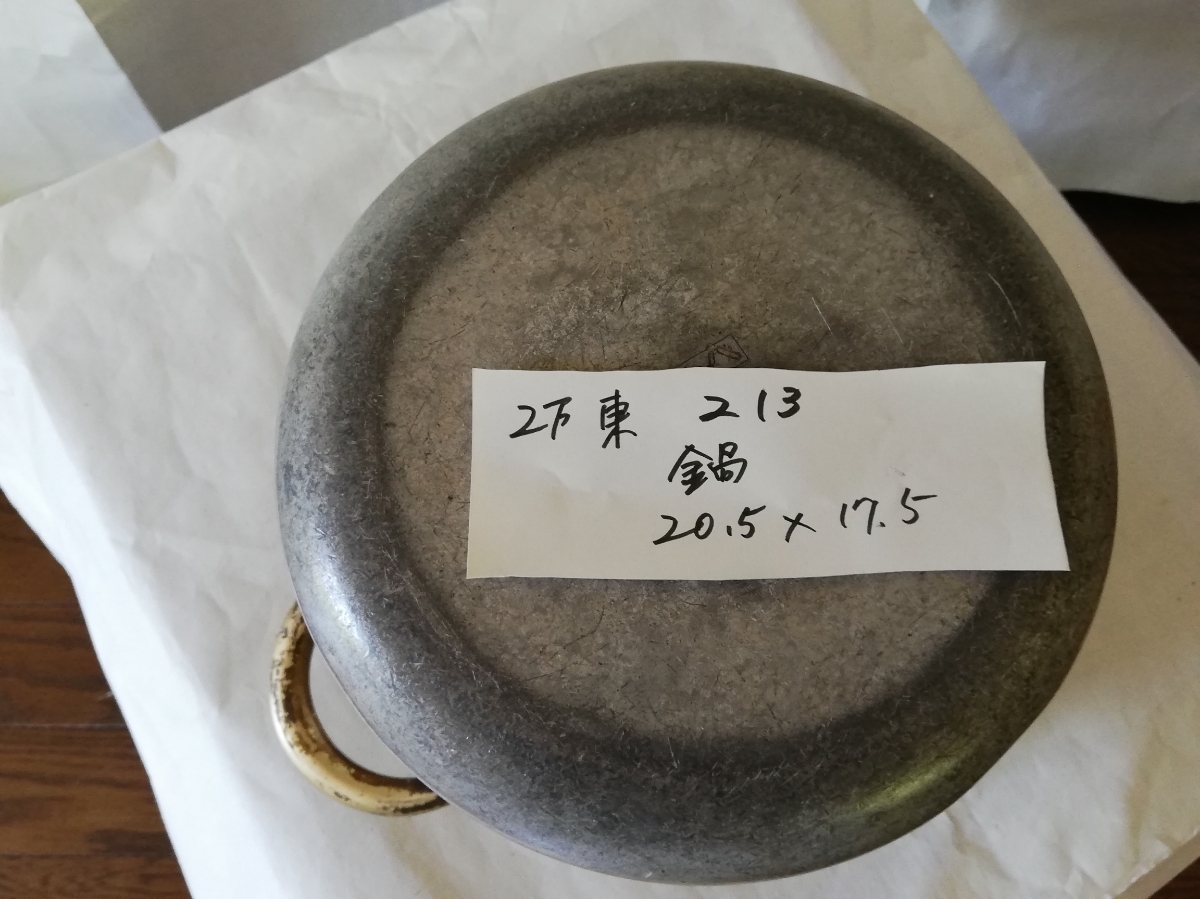 2下東 213
鍋
20.5×17.5